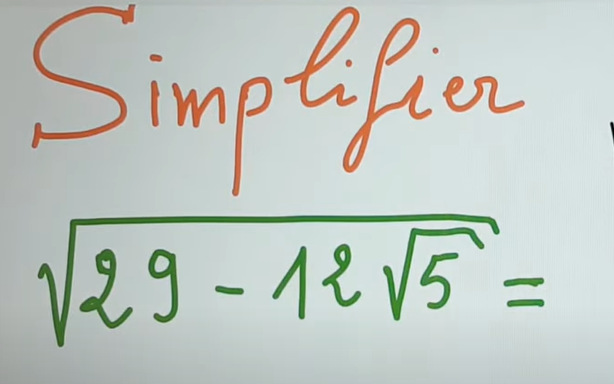 Simplifier
√(29 - 12√5) =